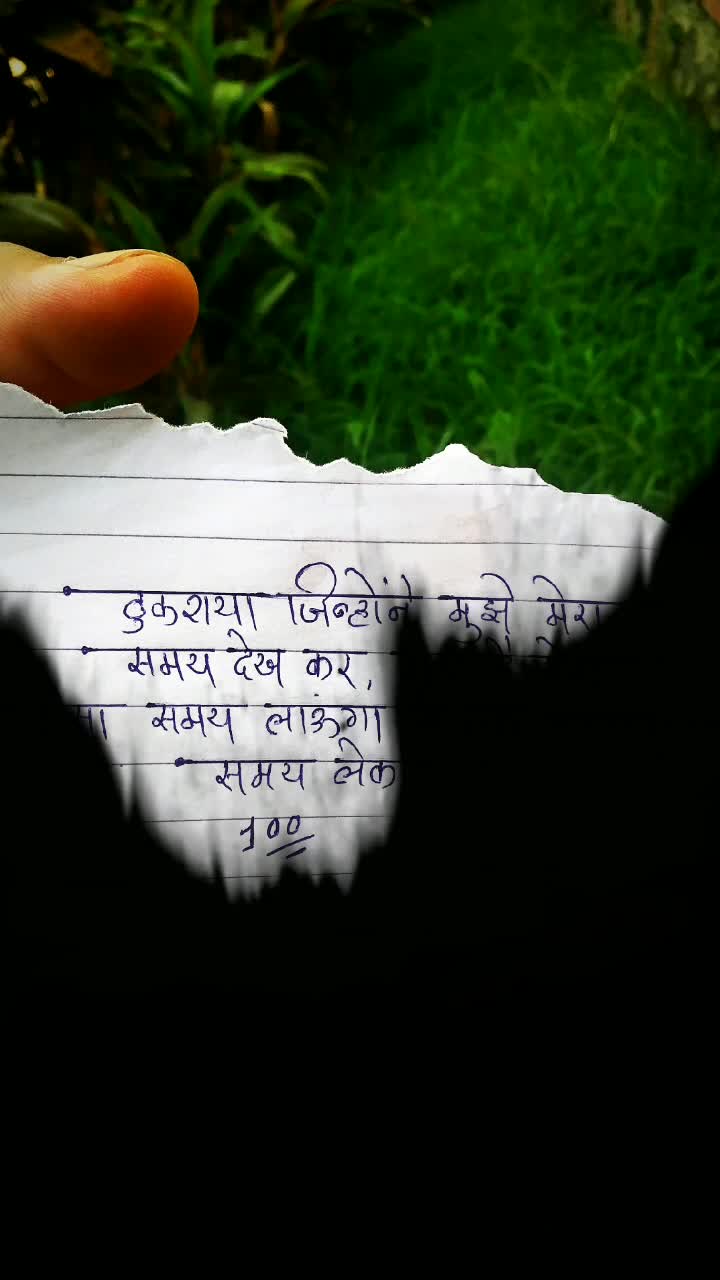 ठुकराया जिन्होंने मुझे मेरा
समय देख कर,
समय लाऊंगा
समय लेक
100